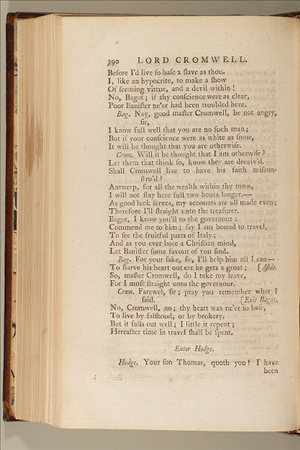 390 LORD CROMWELL.
Before I'd live so base a slave as thou.
I, like an hypocrite, to make a show
Of seeming virtue, and a devil within!
No, Bagot; if thy conscience were as clear,
Poor Banister ne'er had been troubled here.
Bag. Nay, good master Cromwell, be not angry,
sir,
I know full well that you are no such man;
But if your conscience were as white as snow,
It will be thought that you are otherwise.
Crom. Will it be thought that I am otherwise?
Let them that think so, know they are deceiv'd.
Shall Cromwell live to have his faith miscon-
stru'd?
Antwerp, for all the wealth within thy town,
I will not stay here full two hours longer.—
As good luck serves, my accounts are all made even;
Therefore I'll straight unto the treasurer.
Bagot, I know you'll to the governour:
Commend me to him; say I am bound to travel,
To see the fruitful parts of Italy;
And as you ever bore a Christian mind,
Let Banister some favour of you find.
Bag. For your sake, sir, I'll help him all I can—
To starve his heart out ere he gets a groat; [Aside.
So, master Cromwell, do I take my leave,
For I must straight unto the governour.
Crom. Farewel, sir; pray you remember what I
said. [Exit Bagot.
No, Cromwell, no; thy heart was ne'er so base,
To live by falshood, or by brokery.
But it falls out well; I little it repent;
Hereafter time in travel shall be spent.
Enter Hodge.
Hodge. Your son Thomas, quoth you! I have
been